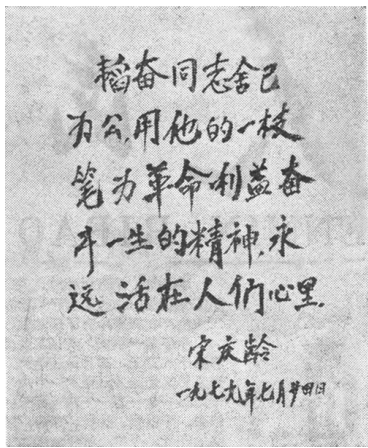 韬奋同志舍己
为公，用他的一枝
笔为革命利益奋
斗一生的精神，永
远活在人们心里。
宋庆龄
一九七九年七月廿四日